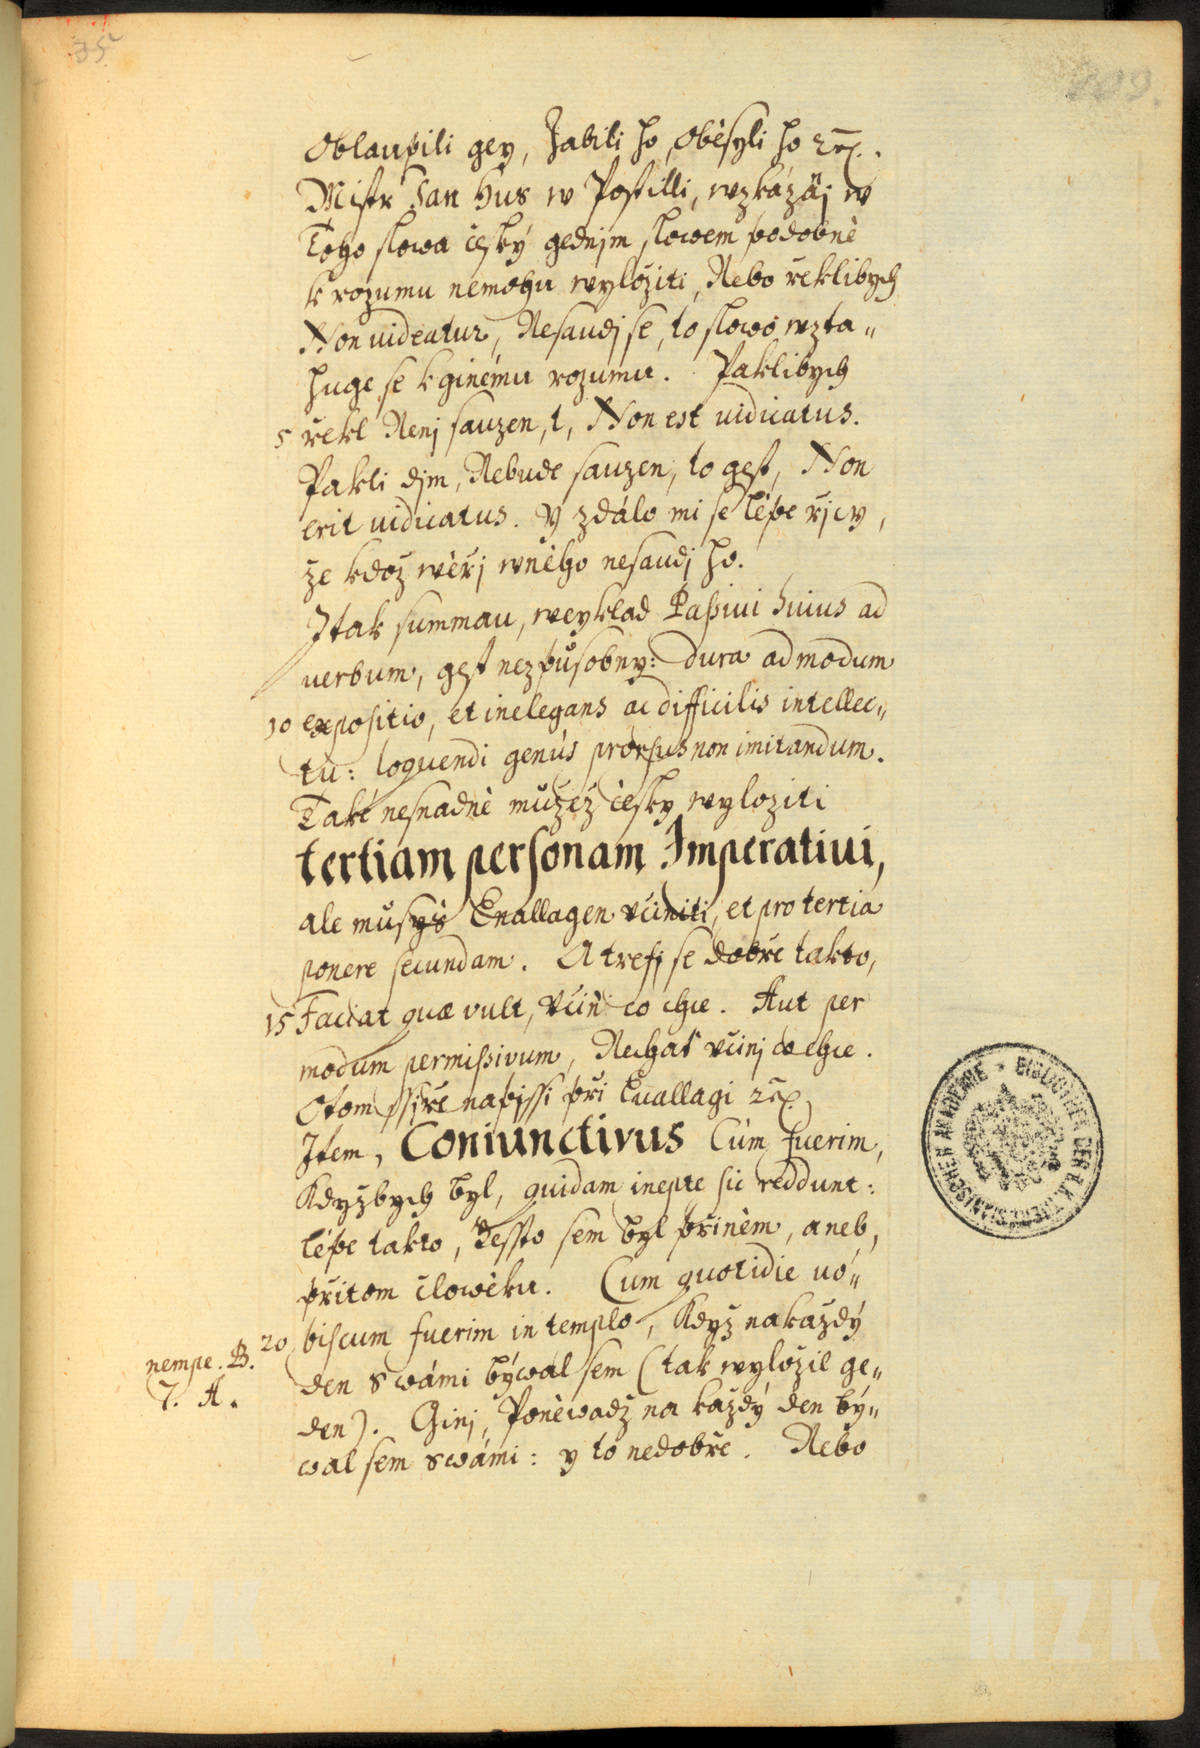 35
209.
Oblaupili gey, Zabili ho, Obèsyli ho ꝛc̃.
Mistr Jan Hus w Postilli, wzkázánj w
Toho slowa česky gednjm slowem podobnè
k rozumu nemohu wyložiti, Nebo řeklibych
Non uideatur, Nesaudj se, to slowo wzta„
huge se k ginému rozumu. Paklibych
5 řekl Nenj sauzen, t, Non est uidicatus.
Pakli djm, Nebude sauzen, to gest, Non
erit uidicatus. Y zdálo mi se lépe řjcy,
že kdož wěřj wněho nesaudj ho.
Itak summau, weyklad Paßiui huius ad
uerbum, gest nezpůsobny: dura admodum
10 expositio, et inelegans ac difficilis intellec„
tu: loquendi genús prorsus non imitandum.
Také nesnadnè můžež česky wyložiti
tertiam personam Imperatiui,
ale musyš Enallagen včiniti, et pro tertia
ponere secundam. A trefj se dobře takto,
15 Faciat quæ vult, včiň co chce. Aut per
modum permißivum, Nechať včinj co chce.
Otom ssíře napjssi při Enallagi ꝛc̃.
Item, Coniunctivus Cúm fuerim,
Kdyžbych byl, quidam inepte sic reddunt:
lépe takto, Žessto sem byl přiněm, aneb,
přitom člowěku. Cum quotidie uó„
20 biscum fuerim in templo, Když nakaždý
nempe. B.
7. A.
den s wámi býwal sem (tak wyložil ge„
den). Ginj, Poněwadž na každý den bý„
wal sem s wámi: y to nedobře. Nebo
BIBLIOTHEK DER K.K. THERESIANISCHEN AKADEMIE
MZK
MZK